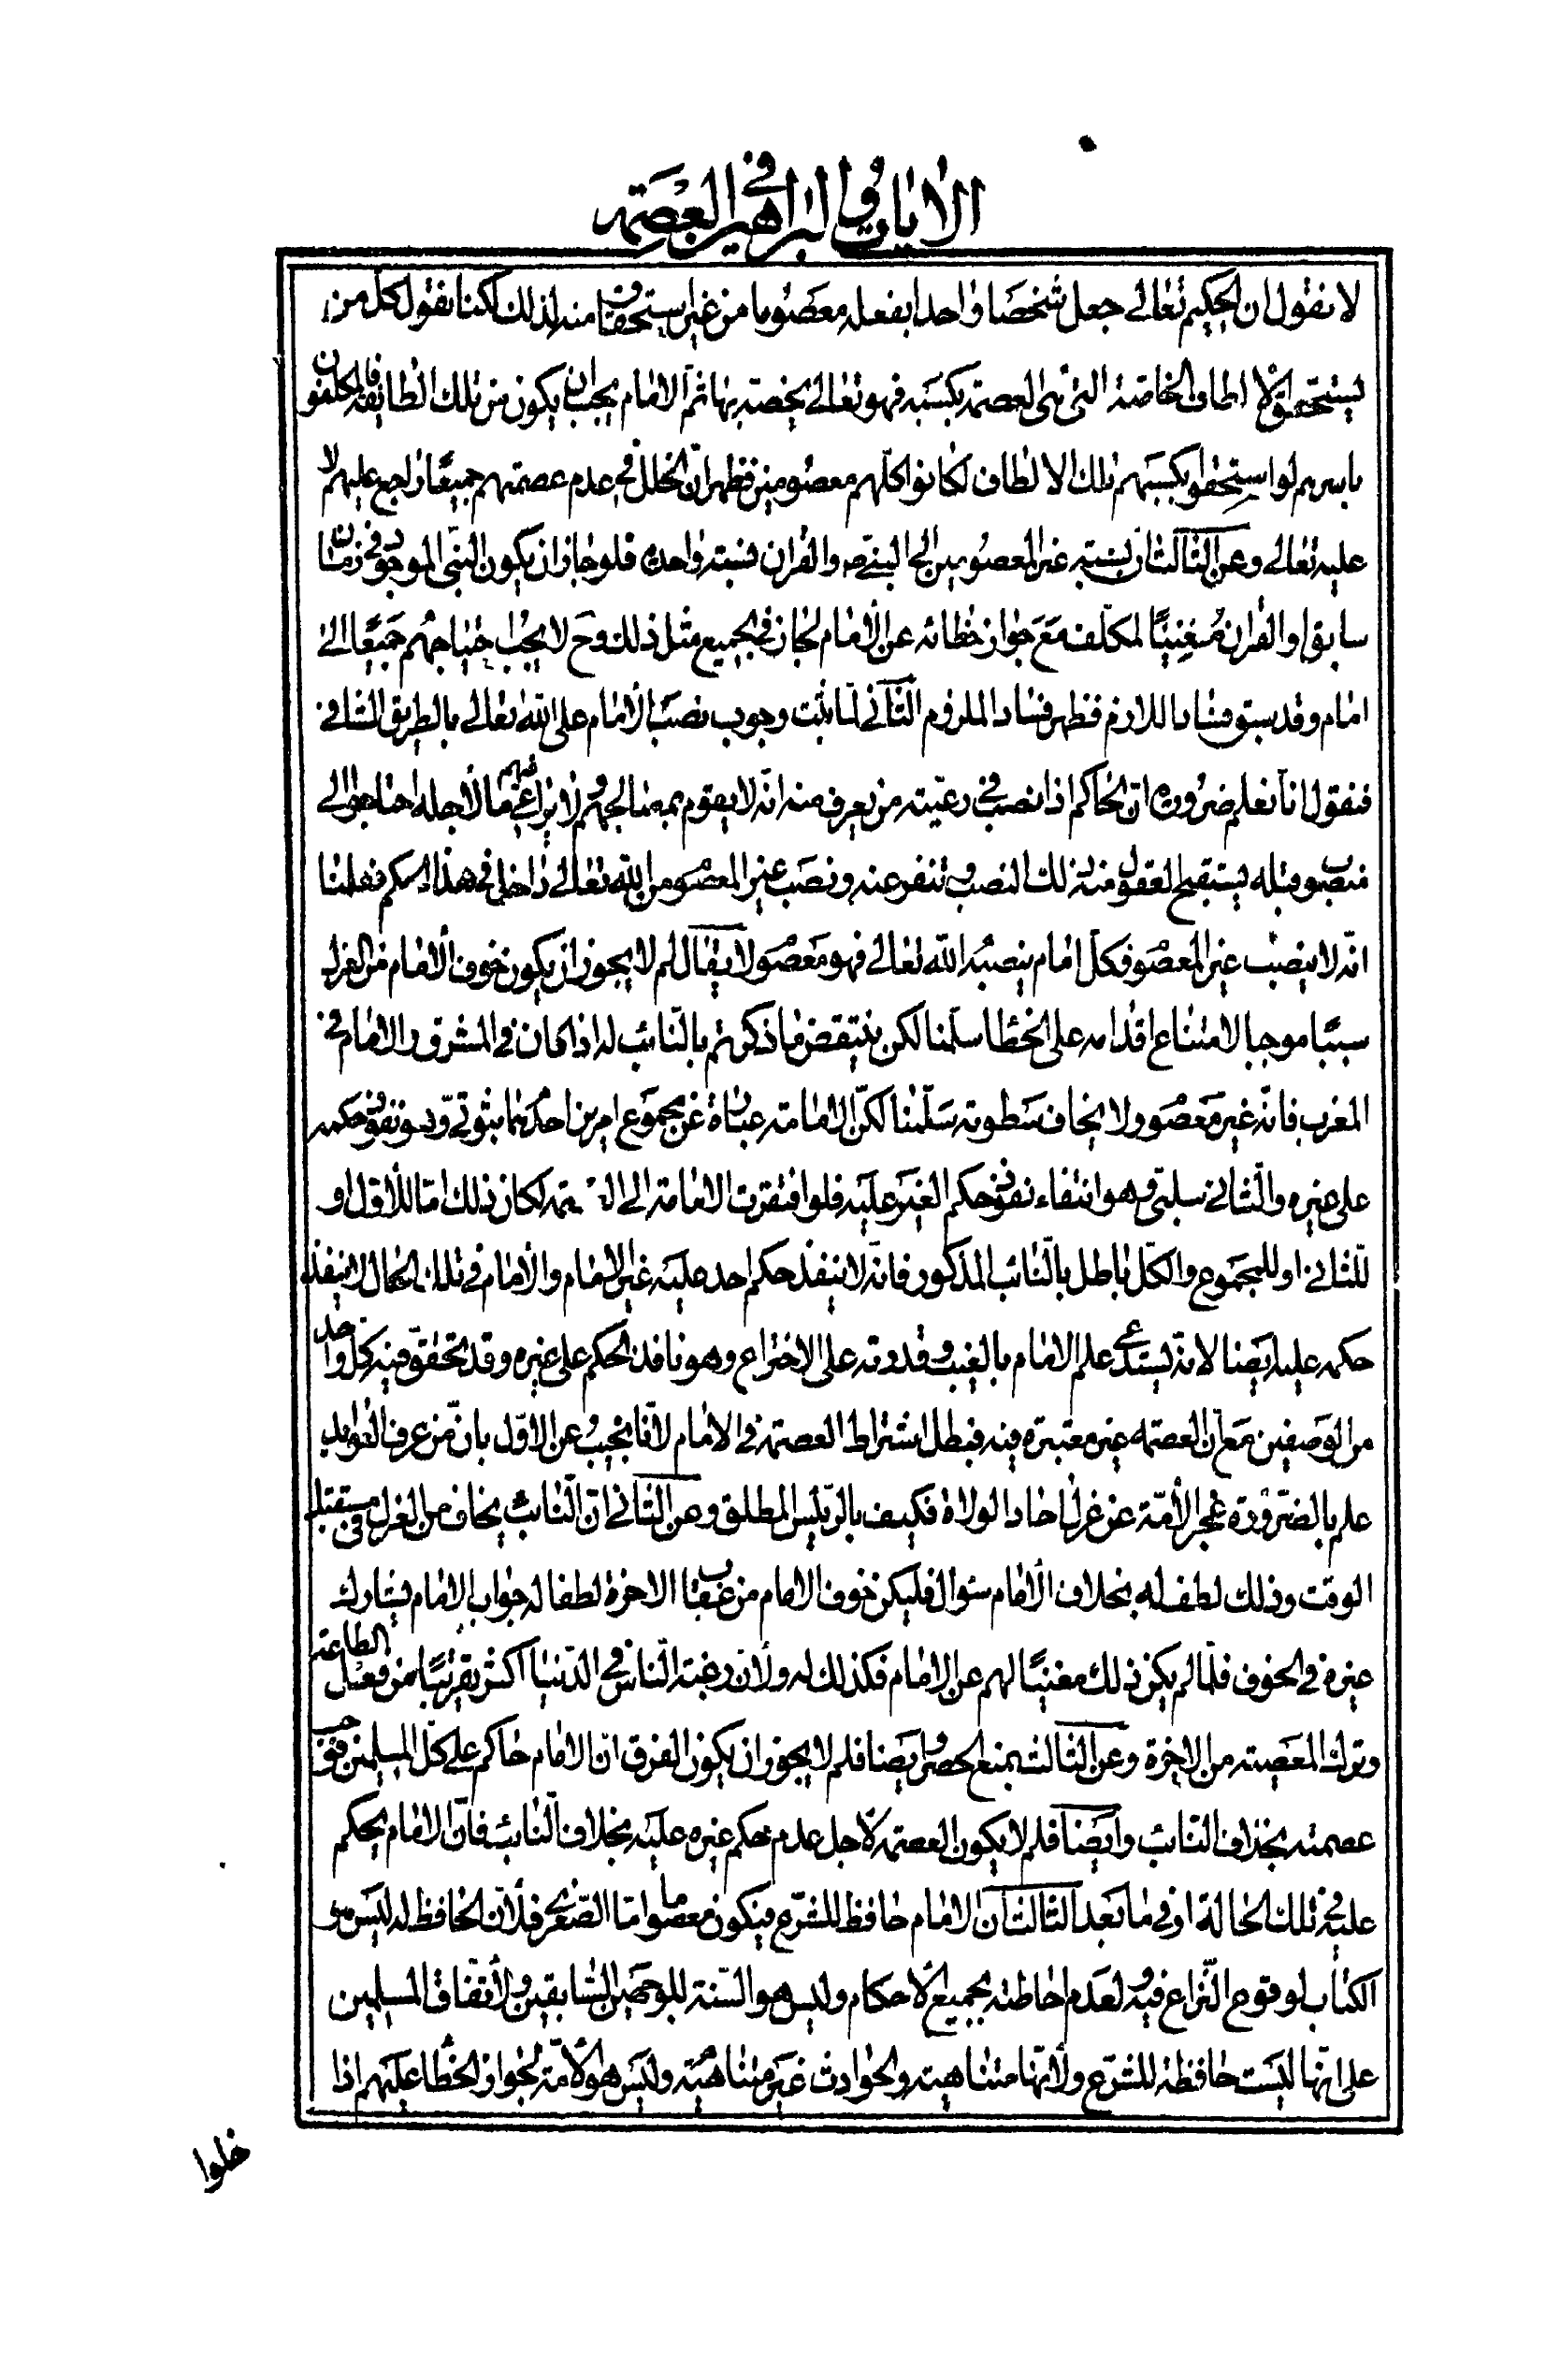 الايات و البراهين في العصمة
لا نقول ان الحكيم تعالى جعل شخصا واحدا بفعله معصوما من غير استحقاق منه لذلك لكنا نقول كل من
يستحق الالطاف الخاصة التي هي العصمة بكسبه فهو تعالى يخصه بها ثم الامام يجب ان يكون من تلك الطائفة فالمكلفون
باسرهم لو استحقوا بكسبهم تلك الالطاف لكانوا كلهم معصومين فظهر ان الخلل في عدم عصمتهم جميعا راجع عليهم لا
عليه تعالى وعن الثالث ان نسبة غير المعصومين الى النبي ص والقران نسبة واحدة فلو جاز ان يكون النبي الموجود في زمان
سابق او القران مغنيا لمكلف مع جواز خطائه عن الامام لجاز في الجميع مثل ذلك وح لا يجب احتياجهم جميعا الى
امام وقد سبق فساد اللازم فظهر فساد الملزوم الثاني لما ثبت وجوب نصب الامام على الله تعالى بالطريق السا في
فنقول انا نعلم ضرورة ان الحاكم اذا نصب في رعيته من يعرف منه انه لا يقوم بمصالحهم ولا يراعي فيهم ما لاجله احتاجوا الى
منصوب قبله يستقبح العقول منه ذلك النصب و تنفر عنه ونصب غير المعصوم من الله تعالى داخل في هذا الحكم فعلمنا
انه لا ينصب غير المعصوم فكل امام ينصبه الله تعالى فهو معصوم لا يقال لم لا يجوز ان يكون خوف الامام من العزل
سببا موجبا لامتناع اقدامه على الخطا سلمنا لكن ينتقض ما ذكرتم بالنائب له اذا كان في المشرق والامام في
المغرب فانه غير معصوم ولا يخاف سطوته سلمنا لكن الامامة عبارة عن مجموع امرين احدهما ثبوتي وهو نفوذ حكمه
على غيره والثاني سلبي وهو انتفاء نفوذ حكم الغير عليه فلو افتقرت الامامة الى العصمة لكان ذلك اما للاول او
للثاني او للمجموع والكل باطل بالنائب المذكور فانه لا ينفذ حكم احد عليه غير الامام والامام في تلك الحال لا ينفذ
حكمه عليه ايضا لانه يستدعي علم الامام بالغيب وقدرته على الاختراع وهو نافذ الحكم على غيره وقد تحقق فيه كل واحد
من الوصفين مع ان العصمة غير معتبرة فيه فبطل اشتراط العصمة في الامام لانا نجيب عن الاول بان من عرف العوايد
علم بالضرورة عجز الامة عن عزل احاد الولاة فكيف بالرئيس المطلق وعن الثاني ان النائب يخاف من العزل في مستقبل
الوقت وذلك لطف له بخلاف الامام سؤال فليكن خوف الامام من عقاب الاخرة لطفا له جواب الامام يشارك
غيره في الخوف فلما لم يكن ذلك مغنيا لهم عن الامام فكذلك له ولان رغبة الناس في الدنيا اكثر تقريبا من فعل الطاعة
وترك المعصية من الاخرة وعن الثالث بمنع الحصر وايضا فلم لا يجوز ان يكون الفرق ان الامام حاكم على كل المسلمين فوجب
عصمته بخلاف النائب وايضا فلم لا يكون العصمة لاجل عدم تحكم غيره عليه بخلاف النائب فان الامام يحكم
عليه في تلك الحالة او في ما بعد الثالث ان الامام حافظ للشرع فيكون معصوما اما الصغرى فلان الحافظ له ليس هو
الكتاب لوقوع النزاع فيه و لعدم احاطته بجميع الاحكام وليس هو السنة للوجهين السابقين ولاتفاق المسلمين
على انها ليست حافظة للشرع ولانها متناهية والحوادث غير متناهية وليس هو الامة لجواز الخطا عليهم اذا
خلوا